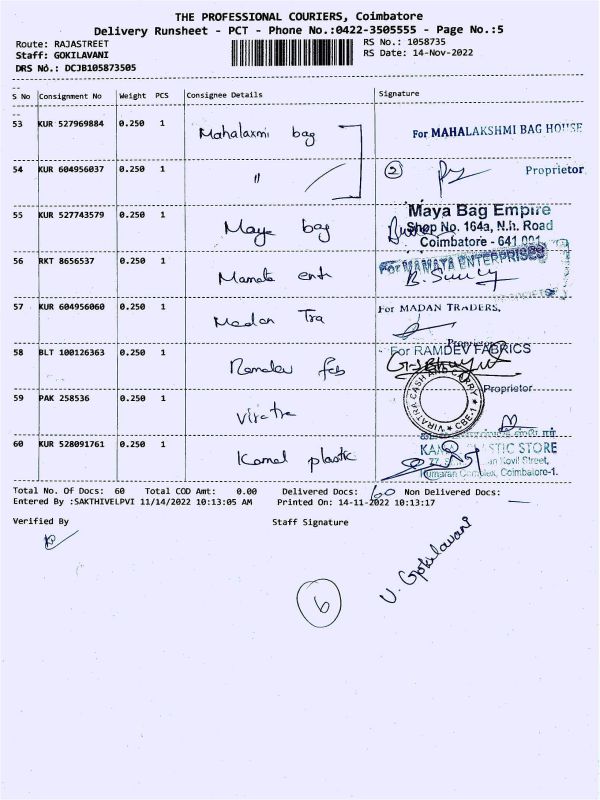 THE PROFESSIONAL COURIERS, Coimbatore
Delivery Runsheet - PCT - Phone No.:0422-3505555 - Page No.:5
Route: RAJASTREET RS No.: 1058735
Staff: GOKILAVANI RS Date: 14-Nov-2022
DRS No.: DCJB105873505
S No Consignment No Weight PCS Consignee Details Signature
53 KUR 527969884 0.250 1 Mahalaxmi bag For MAHALAKSHMI BAG HOUSE
54 KUR 604956037 0.250 1 " 2 Proprietor
55 KUR 527743579 0.250 1 Maya bag Maya Bag Empire
Shop No. 164a, N.h. Road
Coimbatore - 641 001
56 RKT 8656537 0.250 1 Mamata ent For MAMATA ENTERPRISES
57 KUR 604956060 0.250 1 Madan Tra For MADAN TRADERS,
Proprietor
58 BLT 100126363 0.250 1 Ramdev fab For RAMDEV FABRICS
Proprietor
59 PAK 258536 0.250 1 Viratra VIRATRA CASH AND CARRY ★ CBE-1 ★
60 KUR 528091761 0.250 1 Kamal plastic STIC STORE
Kovil Street,
Kumaran Complex, Coimbatore-1.
Total No. Of Docs: 60 Total COD Amt: 0.00 Delivered Docs: 60 Non Delivered Docs: —
Entered By :SAKTHIVELPVI 11/14/2022 10:13:05 AM Printed On: 14-11-2022 10:13:17
Verified By Staff Signature
V. Gokilavani
6